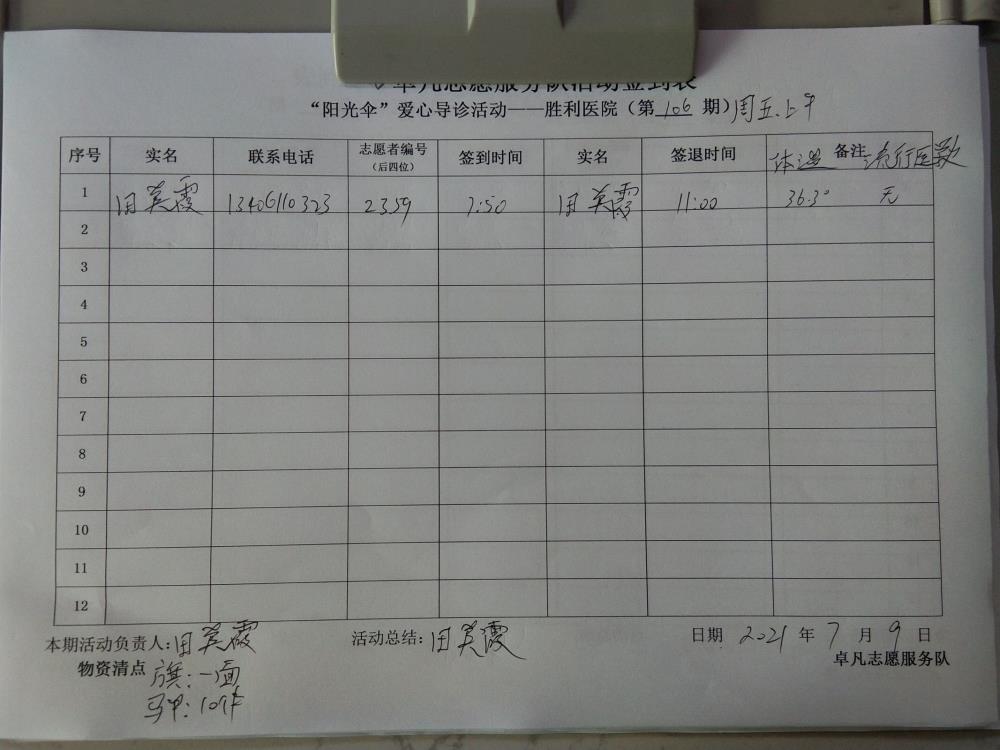 卓凡志愿服务队活动签到表
“阳光伞”爱心导诊活动——胜利医院（第 106 期）周五.上午
序号 实名 联系电话 志愿者编号（后四位） 签到时间 实名 签退时间 体温 备注 流行医数
1 田英霞 13406110323 2359 7:50 田英霞 11:00 36.3° 无
2
3
4
5
6
7
8
9
10
11
12
本期活动负责人:田英霞 活动总结:田英霞 日期 2021 年 7 月 9 日
物资清点 旗:一面 卓凡志愿服务队
马甲:10件